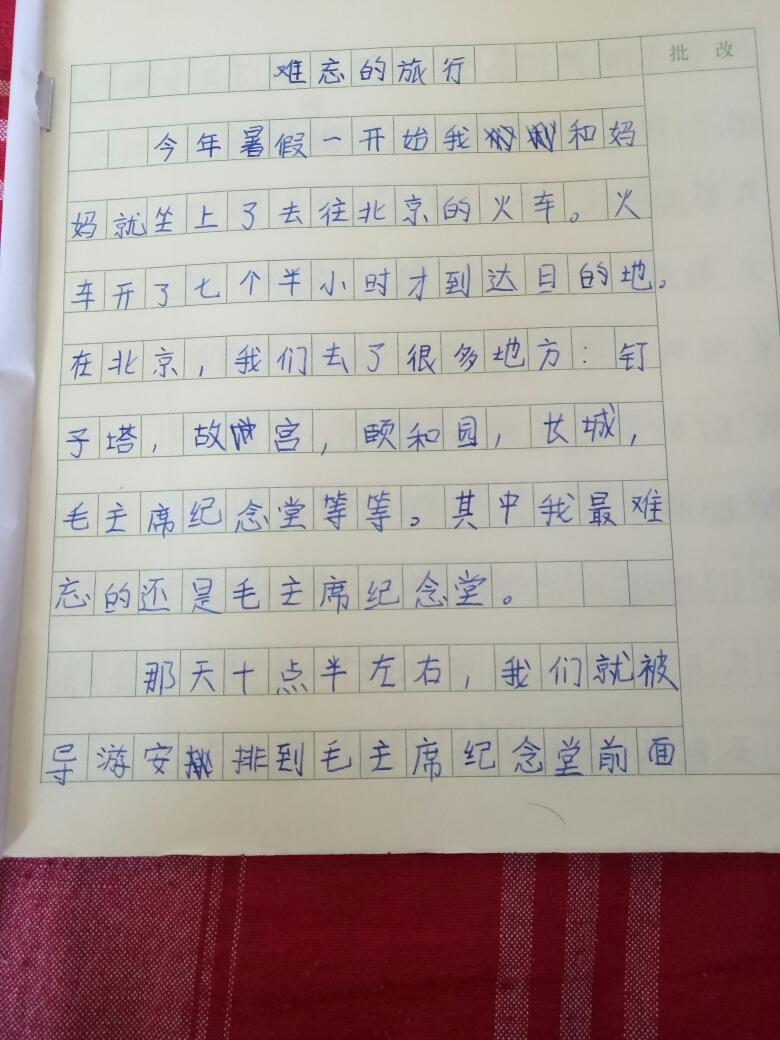 批 改
难忘的旅行
今年暑假一开始我和妈
妈就坐上了去往北京的火车。火
车开了七个半小时才到达目的地。
在北京，我们去了很多地方：钉
子塔，故宫，颐和园，长城，
毛主席纪念堂等等。其中我最难
忘的还是毛主席纪念堂。
那天十点半左右，我们就被
导游安排到毛主席纪念堂前面